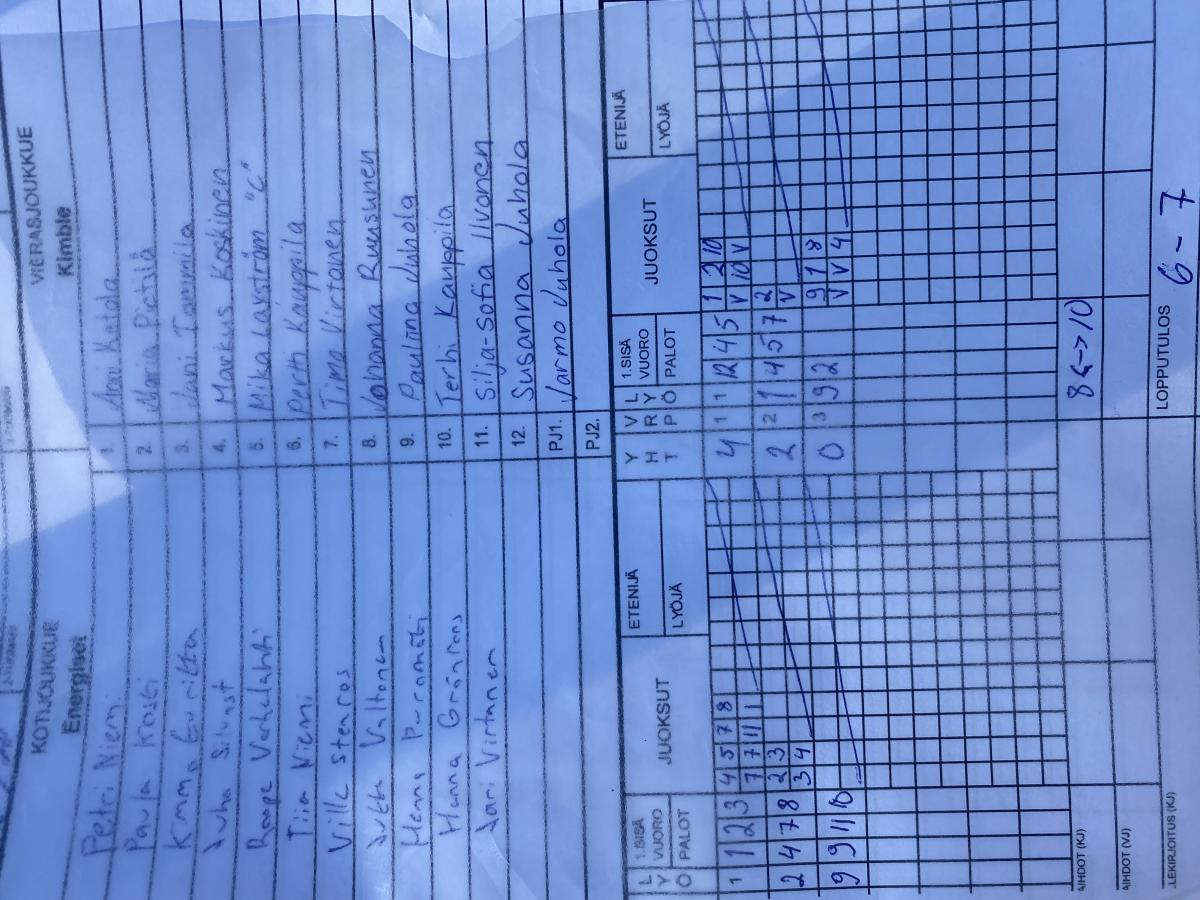 KOTIJOUKKUE VIERASJOUKKUE
Energiset Kimble
Petri Niemi 1. Anni Ketola
Paula Koski 2. Maria Pietilä
Kimmo 3. Jani Tammila
Juha Silvast 4. Markus Koskinen
Roope 5. Mika Laxström "C"
Tiia Niemi 6. Pertti Kauppila
Ville Stenroos 7. Timo Virtanen
Valtonen 8. Johanna Ruusunen
Henna 9. Pauliina Juhola
Henna Grönroos 10. Terhi Kauppila
Jari Virtanen 11. Silja-Sofia Ilvonen
12. Susanna Juhola
PJ1. Jarmo Juhola
PJ2.
LYÖ 1.SISÄVUORO PALOT JUOKSUT ETENIJÄ LYÖJÄ YHT VRP LYÖ 1.SISÄVUORO PALOT JUOKSUT ETENIJÄ LYÖJÄ
1 1 2 3 4 5 7 8 4 1 1 12 4 5 1 2 10
7 7 11 1 V 10 V
2 4 7 8 2 3 2 2 1 4 5 7 2
3 4 V
9 9 11 10 0 3 9 2 9 1 8
V V 4
AIHDOT (KJ) 8<->10
AIHDOT (VJ)
LEKIRJOITUS (KJ) LOPPUTULOS 6 - 7